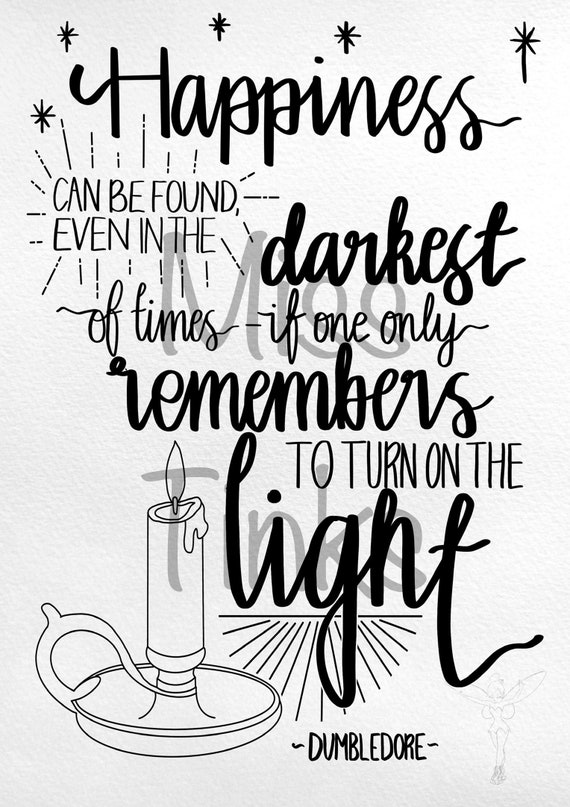 Happiness
CAN BE FOUND,
EVEN IN THE
darkest
of times if one only
remembers
TO TURN ON THE
light
~DUMBLEDORE~
Miss
Tinks